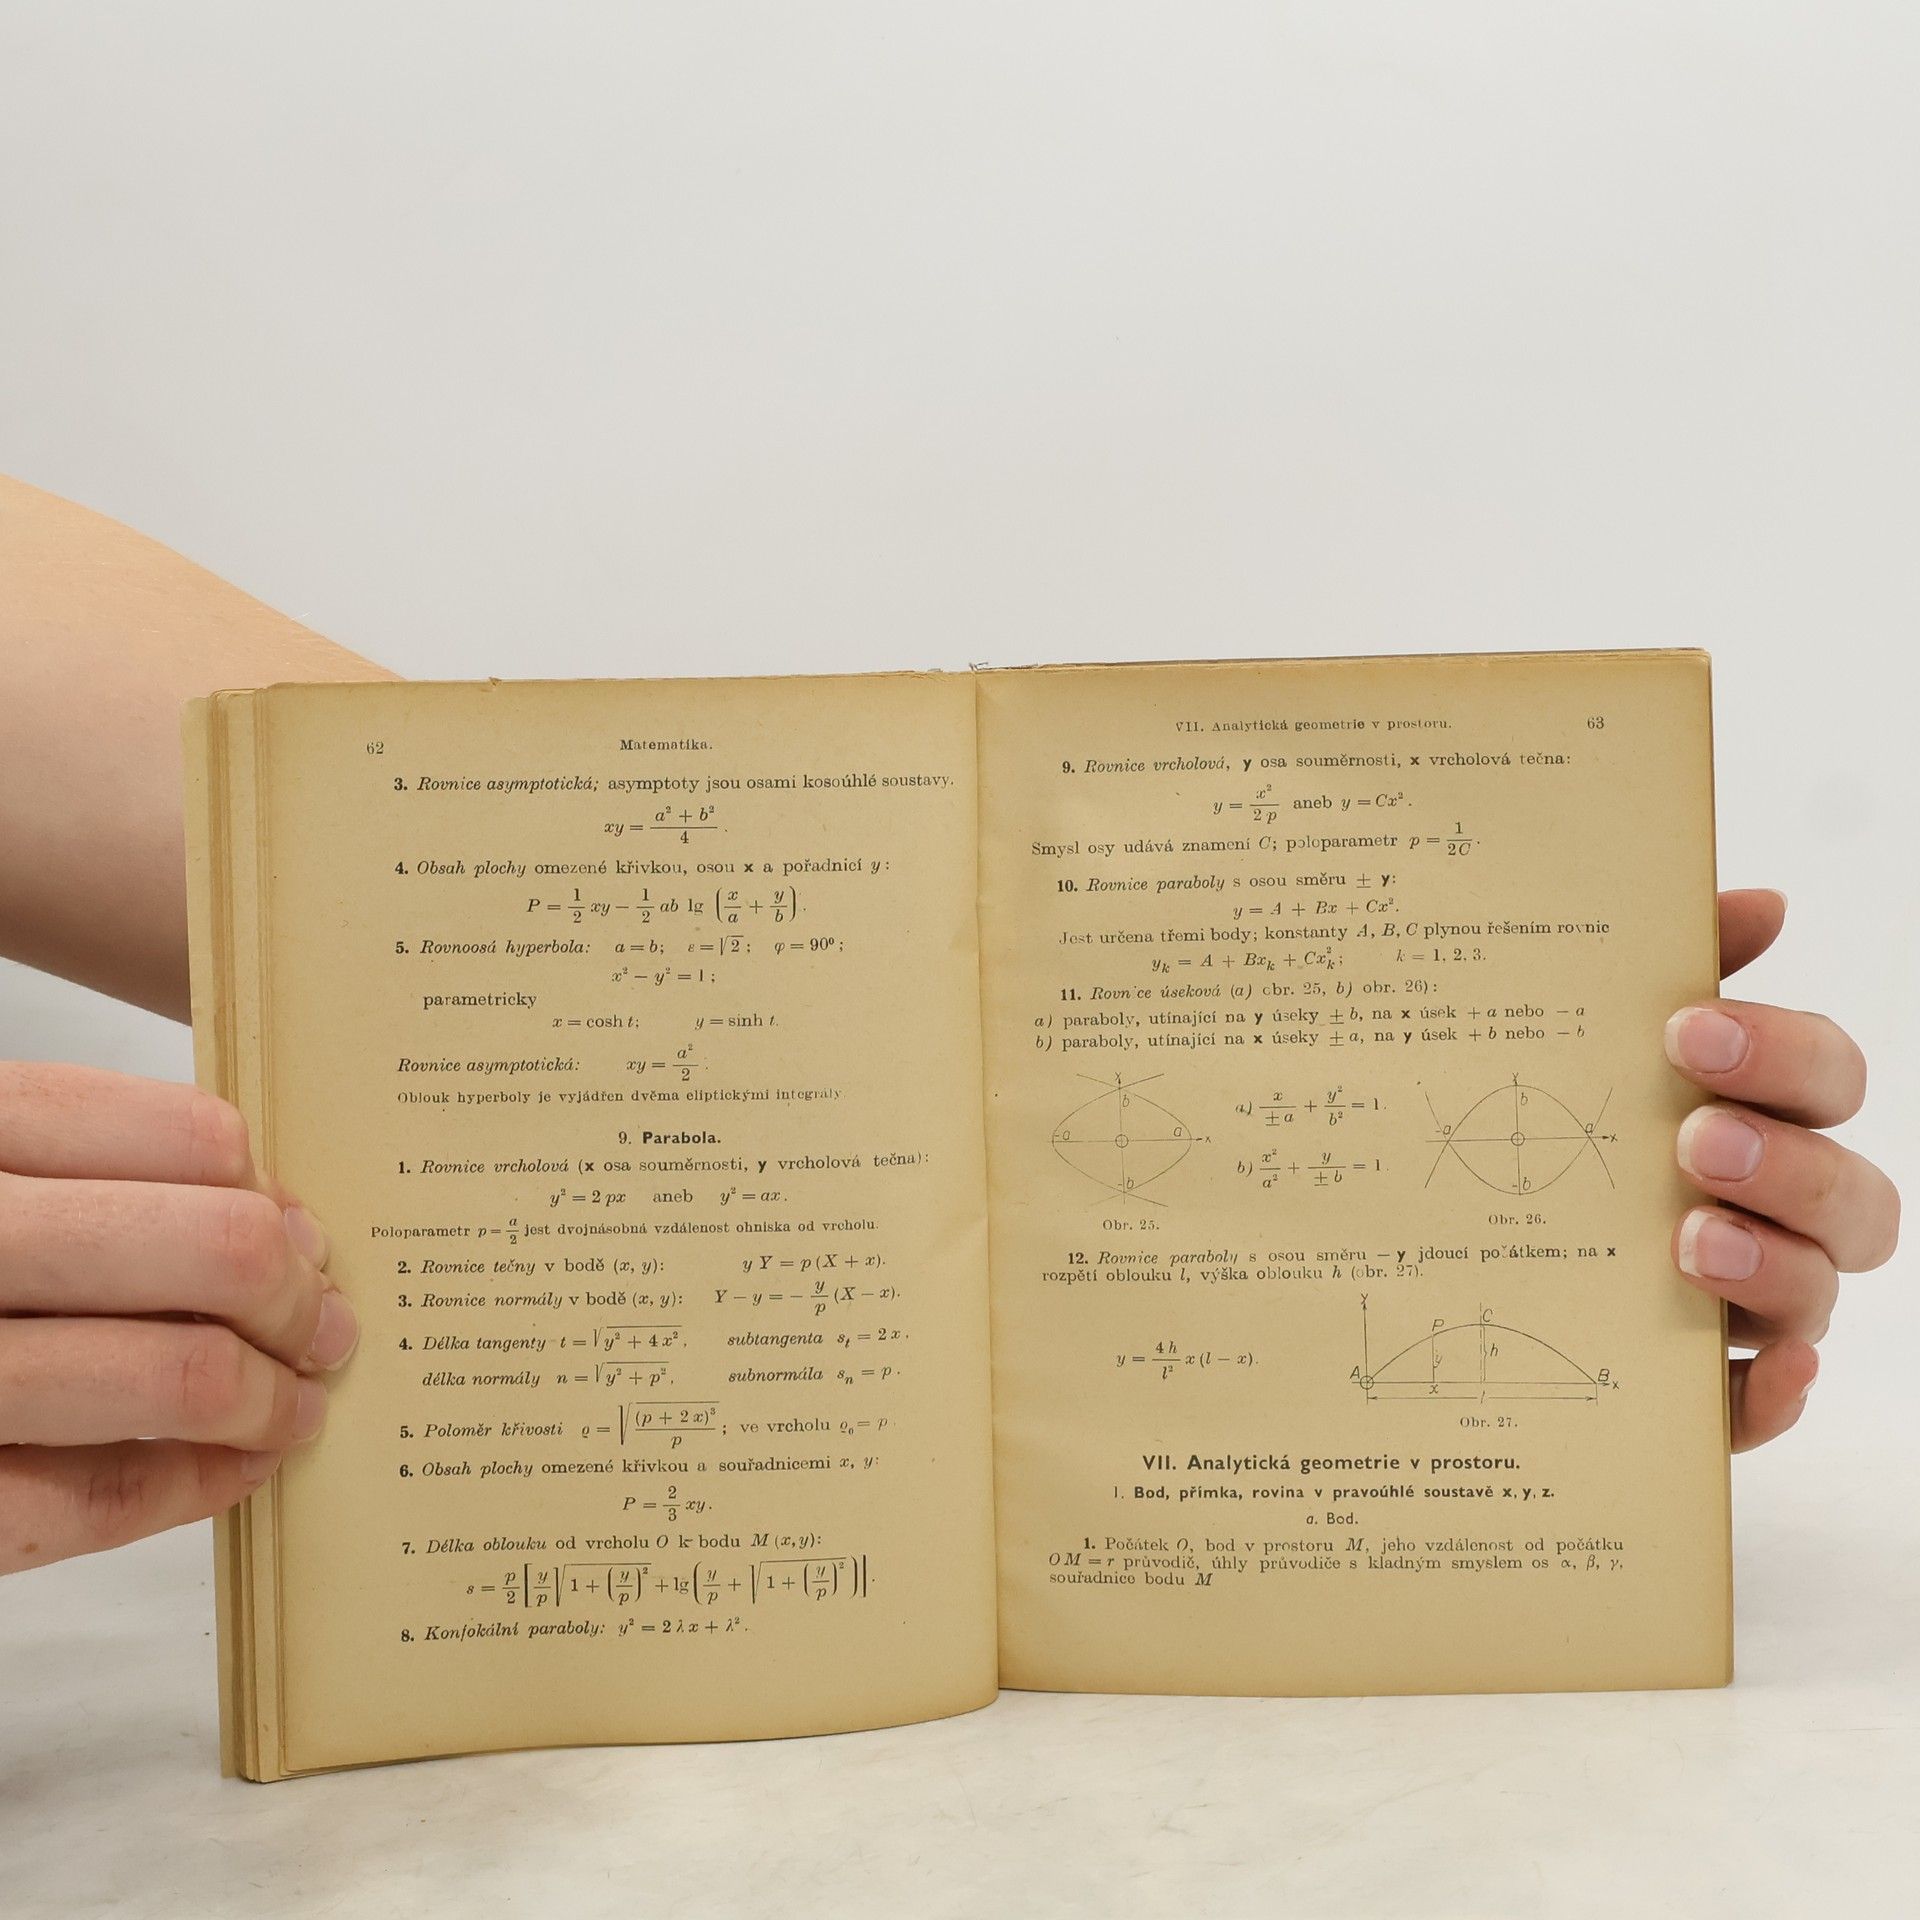 62
Matematika.
3. Rovnice asymptotická; asymptoty jsou osami kosoúhlé soustavy.
xy = (a² + b²)/4 .
4. Obsah plochy omezené křivkou, osou x a pořadnicí y:
P = 1/2 xy − 1/2 ab lg (x/a + y/b) .
5. Rovnoosá hyperbola: a = b; ε = √2 ; φ = 90° ;
x² − y² = 1 ;
parametricky
x = cosh t; y = sinh t.
Rovnice asymptotická: xy = a²/2 .
Oblouk hyperboly je vyjádřen dvěma eliptickými integrály.
9. Parabola.
1. Rovnice vrcholová (x osa souměrnosti, y vrcholová tečna):
y² = 2 px aneb y² = ax .
Poloparametr p = a/2 jest dvojnásobná vzdálenost ohniska od vrcholu.
2. Rovnice tečny v bodě (x, y): y Y = p (X + x).
3. Rovnice normály v bodě (x, y): Y − y = − y/p (X − x).
4. Délka tangenty t = √(y² + 4 x²) , subtangenta sₜ = 2 x .
délka normály n = √(y² + p²) , subnormála sₙ = p .
5. Poloměr křivosti ϱ = √((p + 2 x)³/p) ; ve vrcholu ϱ₀ = p .
6. Obsah plochy omezené křivkou a souřadnicemi x, y:
P = 2/3 xy .
7. Délka oblouku od vrcholu O k bodu M (x, y):
s = p/2 [y/p √(1 + (y/p)²) + lg (y/p + √(1 + (y/p)²))] .
8. Konfokální paraboly: y² = 2 λ x + λ² .
VII. Analytická geometrie v prostoru.
63
9. Rovnice vrcholová, y osa souměrnosti, x vrcholová tečna:
y = x²/(2 p) aneb y = Cx² .
Smysl osy udává znamení C; poloparametr p = 1/(2C) .
10. Rovnice paraboly s osou směru ± y:
y = A + Bx + Cx².
Jest určena třemi body; konstanty A, B, C plynou řešením rovnic
yₖ = A + Bxₖ + Cxₖ² ; k = 1, 2, 3.
11. Rovnice úseková (a) obr. 25, b) obr. 26):
a) paraboly, utínající na y úseky ± b, na x úsek + a nebo − a
b) paraboly, utínající na x úseky ± a, na y úsek + b nebo − b
y
b
-a
a
x
-b
Obr. 25.
a) x/(± a) + y²/b² = 1.
b) x²/a² + y/(± b) = 1.
y
b
-a
a
x
-b
Obr. 26.
12. Rovnice paraboly s osou směru − y jdoucí počátkem; na x
rozpětí oblouku l, výška oblouku h (obr. 27).
y = 4 h/l² x (l − x).
y
P
C
y
h
A
x
B
x
l
Obr. 27.
VII. Analytická geometrie v prostoru.
1. Bod, přímka, rovina v pravoúhlé soustavě x, y, z.
a. Bod.
1. Počátek O, bod v prostoru M, jeho vzdálenost od počátku
OM = r průvodič, úhly průvodiče s kladným smyslem os α, β, γ,
souřadnice bodu M